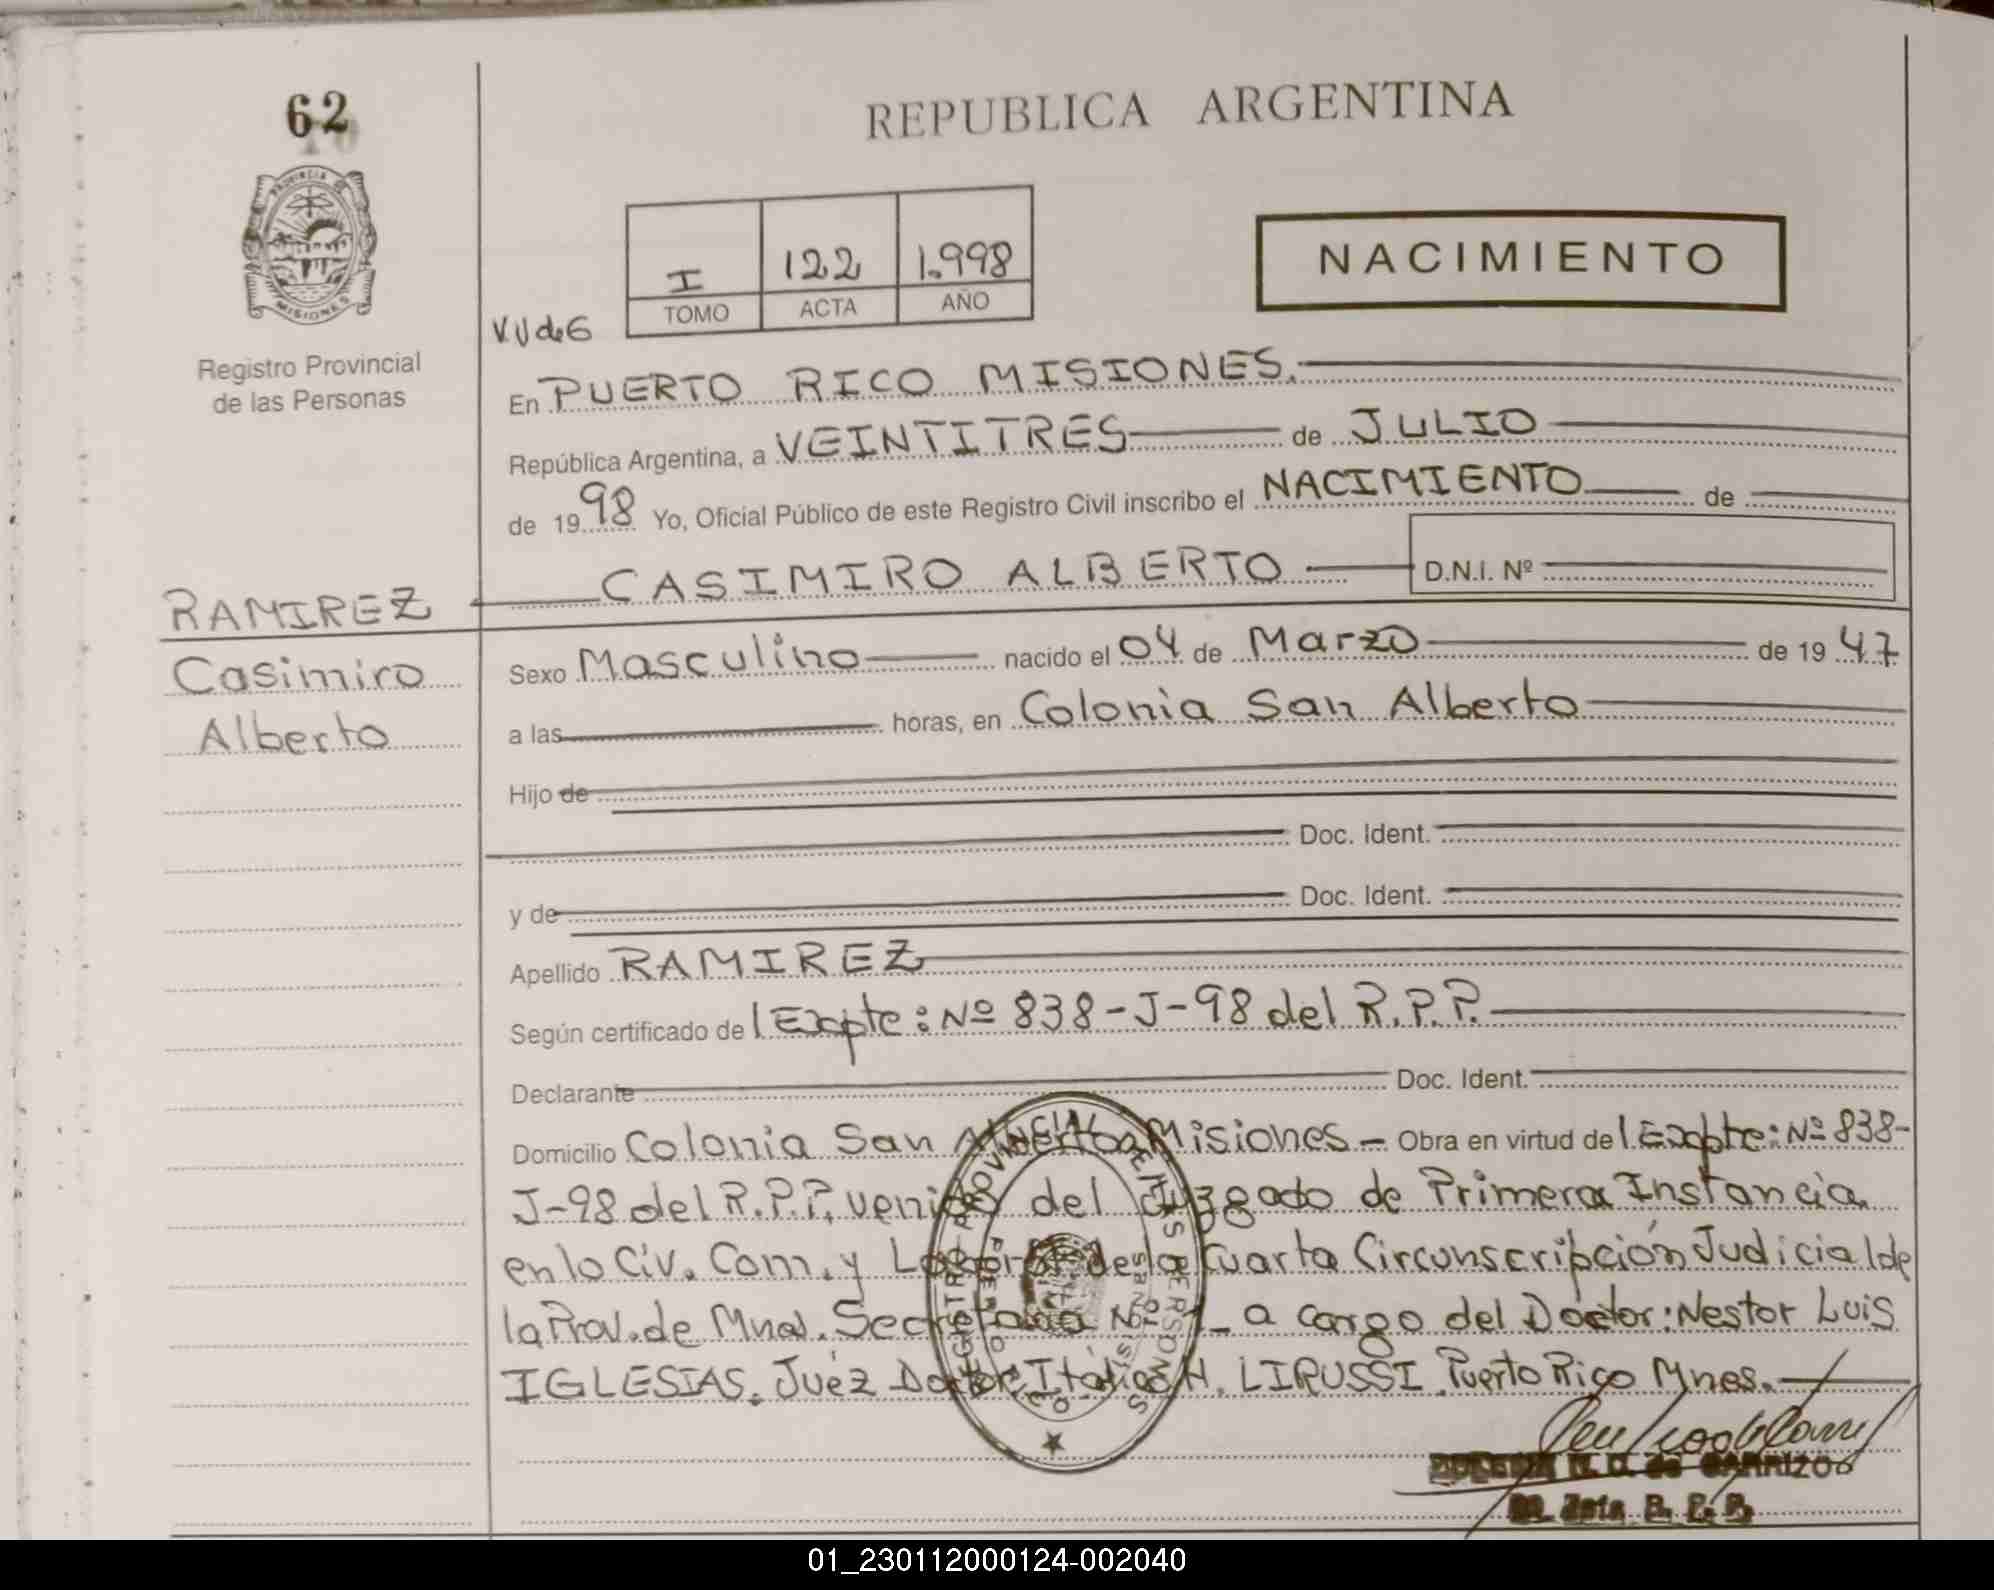 62
REPUBLICA ARGENTINA
PROVINCIA DE
MISIONES
Registro Provincial
de las Personas
I 122 1.998
TOMO ACTA AÑO
NACIMIENTO
En PUERTO RICO MISIONES.
República Argentina, a VEINTITRES de JULIO
de 1998 Yo, Oficial Público de este Registro Civil inscribo el NACIMIENTO de
CASIMIRO ALBERTO D.N.I. Nº
RAMIREZ
Casimiro
Alberto
Sexo Masculino nacido el 04 de Marzo de 1947
a las horas, en Colonia San Alberto
Hijo de
Doc. Ident.
y de Doc. Ident.
Apellido RAMIREZ
Según certificado del Expte: Nº 838-J-98 del R.P.P.
Declarante Doc. Ident.
Domicilio Colonia San Alberto Misiones.- Obra en virtud del Expte: Nº 838-
J-98 del R.P.P. venido del Juzgado de Primera Instancia
en lo Civ. Com. y Laboral de la Cuarta Circunscripción Judicial de
la Prov. de Mnes. Secretaria Nº 1 - a cargo del Doctor: Nestor Luis
IGLESIAS. Juéz Doctor Italico H. LIRUSSI. Puerto Rico Mnes.
REGISTRO PROVINCIAL DE LAS PERSONAS
PUERTO RICO
MISIONES
de CARRIZO
R. P. P.
01_230112000124-002040